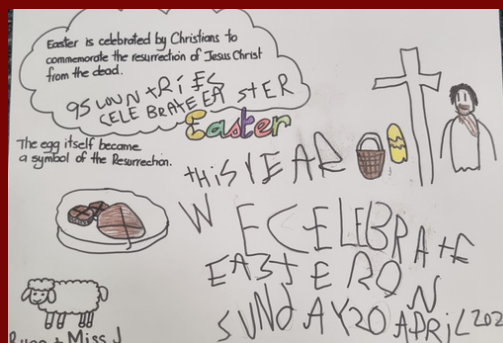 Easter is celebrated by Christians to
commemorate the resurrection of Jesus Christ
from the dead.
95 COUNTRIES
CELEBRATE EASTER
Easter
The egg itself became
a symbol of the Resurrection.
THIS YEAR
WE CELEBRATE
EASTER ON
SUNdAY 20 APRiL 202
+ Miss J